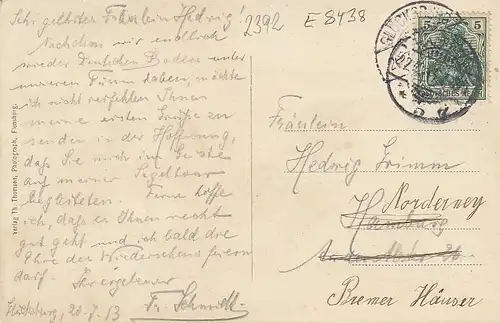 Sehr geehrtes Fräulein Hedwig!
Nachdem wir endlich
wieder Deutschen Boden unter
unseren Füssen haben, möchte
ich nicht verfehlen Ihnen
meine ersten Grüße zu
senden in der Hoffnung,
daß Sie mich im Geiste
auf meiner Segeltour
begleiteten. Ferner hoffe
ich, daß es Ihnen recht
gut geht und ich bald die
Ehre des Wiedersehens feiern
darf. Ihr ergebener
Fr. Schmidt
Glücksburg, 20.7.13
2392
E 8438
5
5
Fräulein
Hedwig Grimm
Hamburg Norderney
Bremer Häuser
Verlag Th. Thomsen, Photograph, Flensburg.